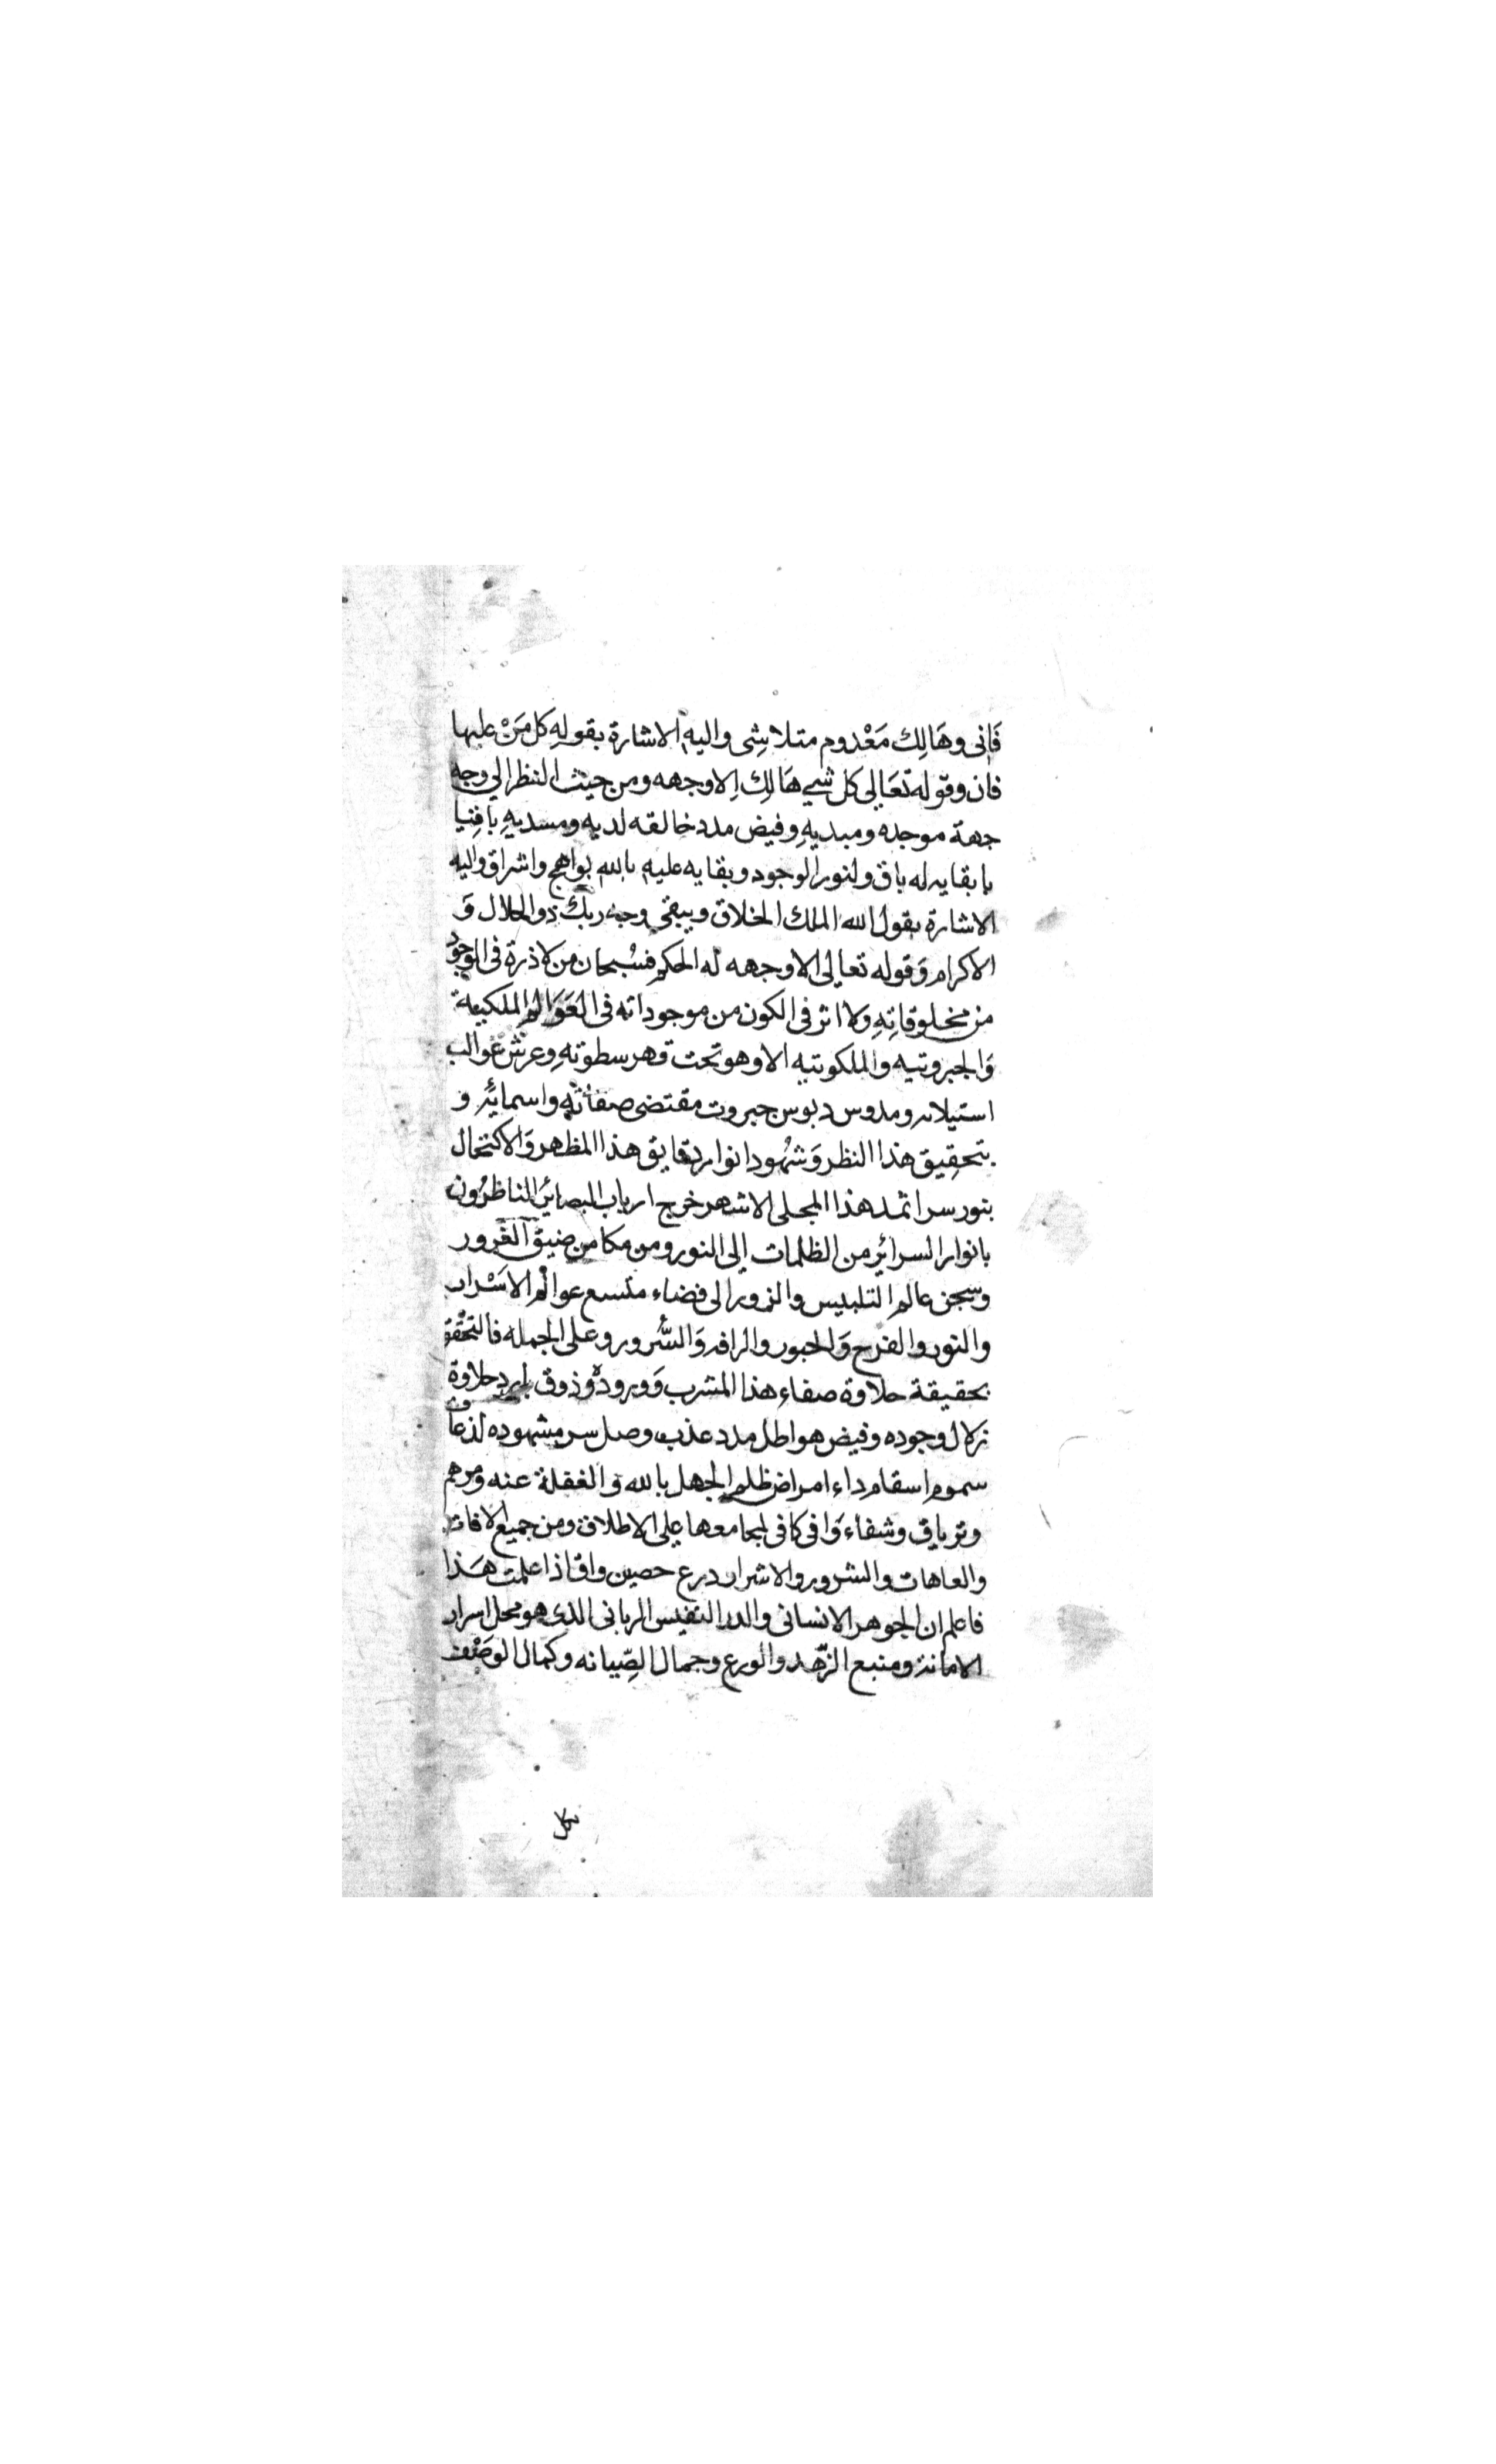 فَانى وهَالِك مَعْدوم متلاشِى واليه الاشارة بقولهِ كل مَنْ عليها
فان وقوله تعَالى كل شىء هَالِك اِلا وجهه ومن حيث النظر الي وجه
جهة موجده ومبديهِ وفيض مدد خالقه لديه ومسديهِ
بابقايه له باق ولنور الوجود وبقايه عليه بالله بواهج واشراق واليه
الاشارة بقول الله الملك الخلاق ويبقى وجه ربك ذو الجلال وَ
الاكرام وَقوله تعالى الا وجهه له الحكم فسُبحان من لا ذرة فى الوجود
من مخلوقاتِهِ ولا اثر فى الكون من موجوداته فى العَوَالم الملكية
وَالجبروتيه والملكوتيه الا وهو تحت قهر سطوتهِ وعرش غوالب
استيلائه ومدوس دبوس جبروت مقتضى صفاته واسمائه و
بتحقِيق هذا النظر وَشهُود انوار دقايق هذا المظهر وَالاكتحال
بنور سر اثمد هذا المجلى الاشهر خرج ارباب البصائر الناظرُون
بانوار السرائر من الظلمات الى النور ومن مكامن ضيق الغرور
وسجن عالم التلبيس والزور الى فضاء متسع عوالم الاسْرار
والنور والفرح وَالحبور والرافه وَالسُّرور وعلى الجمله فالتحقق
بحقيقة حلاوة صفاء هذا المشرب وَوروده وذوق بارد حلاوة
زلال وجوده وفيض هواطل مدد عذب وصل سر مشهوده لذعاق
سموم اسقام داء امراض ظلم الجهل بالله والغفلة عنه ومرهم
وترياق وشفاء وَافى كافى لمجامعها على الاطلاق ومن جميع الافات
والعاهات والشرور والاشرار درع حصين واق اذا علمت هَذا
فاعلم ان الجوهر الانسانى والدر النفيس الربانى الذى هو محل اسرار
الامانة ومنبع الزّهد والورع وجمال الصِّيانه وكمال الوَصْف